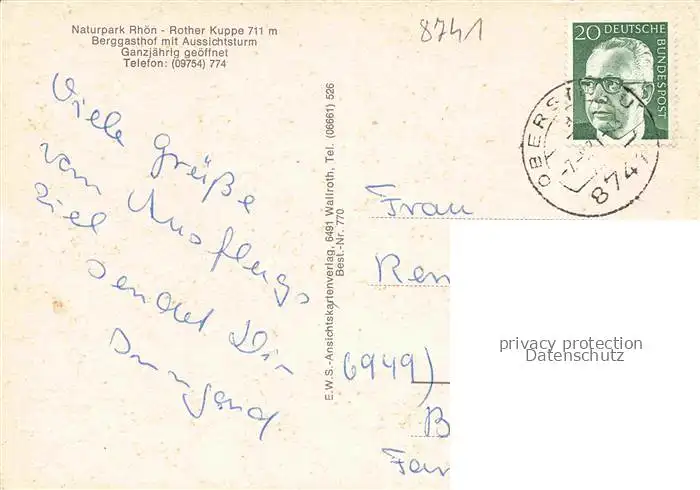 Naturpark Rhön - Rother Kuppe 711 m
Berggasthof mit Aussichtsturm
Ganzjährig geöffnet
Telefon: (09754) 774
8741
20 DEUTSCHE
BUNDESPOST
8741
Viele Grüße
vom Ausflugs
ziel
sendet Dir
E.W.S.-Ansichtskartenverlag, 6491 Wallroth, Tel. (06661) 526
Best.-Nr. 770
Frau
Ren
6949)
B
privacy protection
Datenschutz